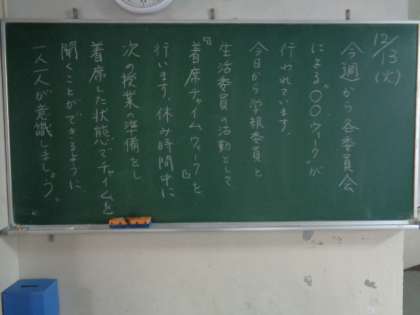 12/13(火)
今週から各委員会
による"○○ウィーク"が
行われています。
今日から学級委員と
生活委員の活動として
『着席チャイムウィーク』を
行います。休み時間中に
次の授業の準備をし
着席した状態でチャイムを
聞くことができるように
一人一人が意識しましょう。